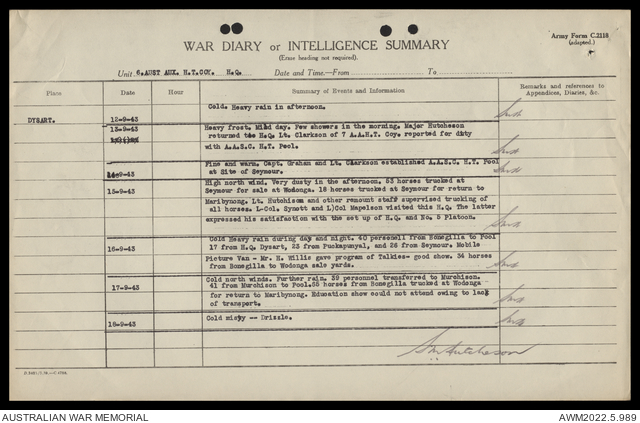 Army Form C.2118
(adapted.)
WAR DIARY or INTELLIGENCE SUMMARY
(Erase heading not required).
Unit 6.AUST AUX. H.T.COY. H.Q. Date and Time.—From To
Place Date Hour Summary of Events and Information Remarks and references to
Appendices, Diaries, &c.
Cold. Heavy rain in afternoon.
DYSART. 12-9-43
13-9-43 Heavy frost. Mild day. Few showers in the morning. Major Hutcheson
returned to H.Q. Lt. Clarkson of 7 A.A.H.T. Coy. reported for duty
with A.A.S.C. H.T. Pool.
Fine and warm. Capt. Graham and Lt. Clarkson established A.A.S.C. H.T. Pool
14-9-43 at Site of Seymour.
High north wind. Very dusty in the afternoon. 53 horses trucked at
15-9-43 Seymour for sale at Wodonga. 18 horses trucked at Seymour for return to
Maribynong. Lt. Hutchison and other remount staff supervised trucking of
all horses. L-Col. Synott and L)Col Mapelson visited this H.Q. The latter
expressed his satisfaction with the set up of H.Q. and No. 5 Platoon.
Cold Heavy rain during day and night. 40 personell from Bonegilla to Pool
16-9-43 17 from H.Q. Dysart, 23 from Puckapunyal, and 26 from Seymour. Mobile
Picture Van - Mr. H. Willis gave program of Talkies- good show. 34 horses
from Bonegilla to Wodonga sale yards.
Cold north winds. Further rain. 39 personnel transferred to Murchison.
17-9-43 41 from Murchison to Pool.55 horses from Bonegilla trucked at Wodonga
for return to Maribynong. Education show could not attend owing to lack
of transport.
Cold misty -- Drizzle.
18-9-43
AUSTRALIAN WAR MEMORIAL
AWM2022.5.989